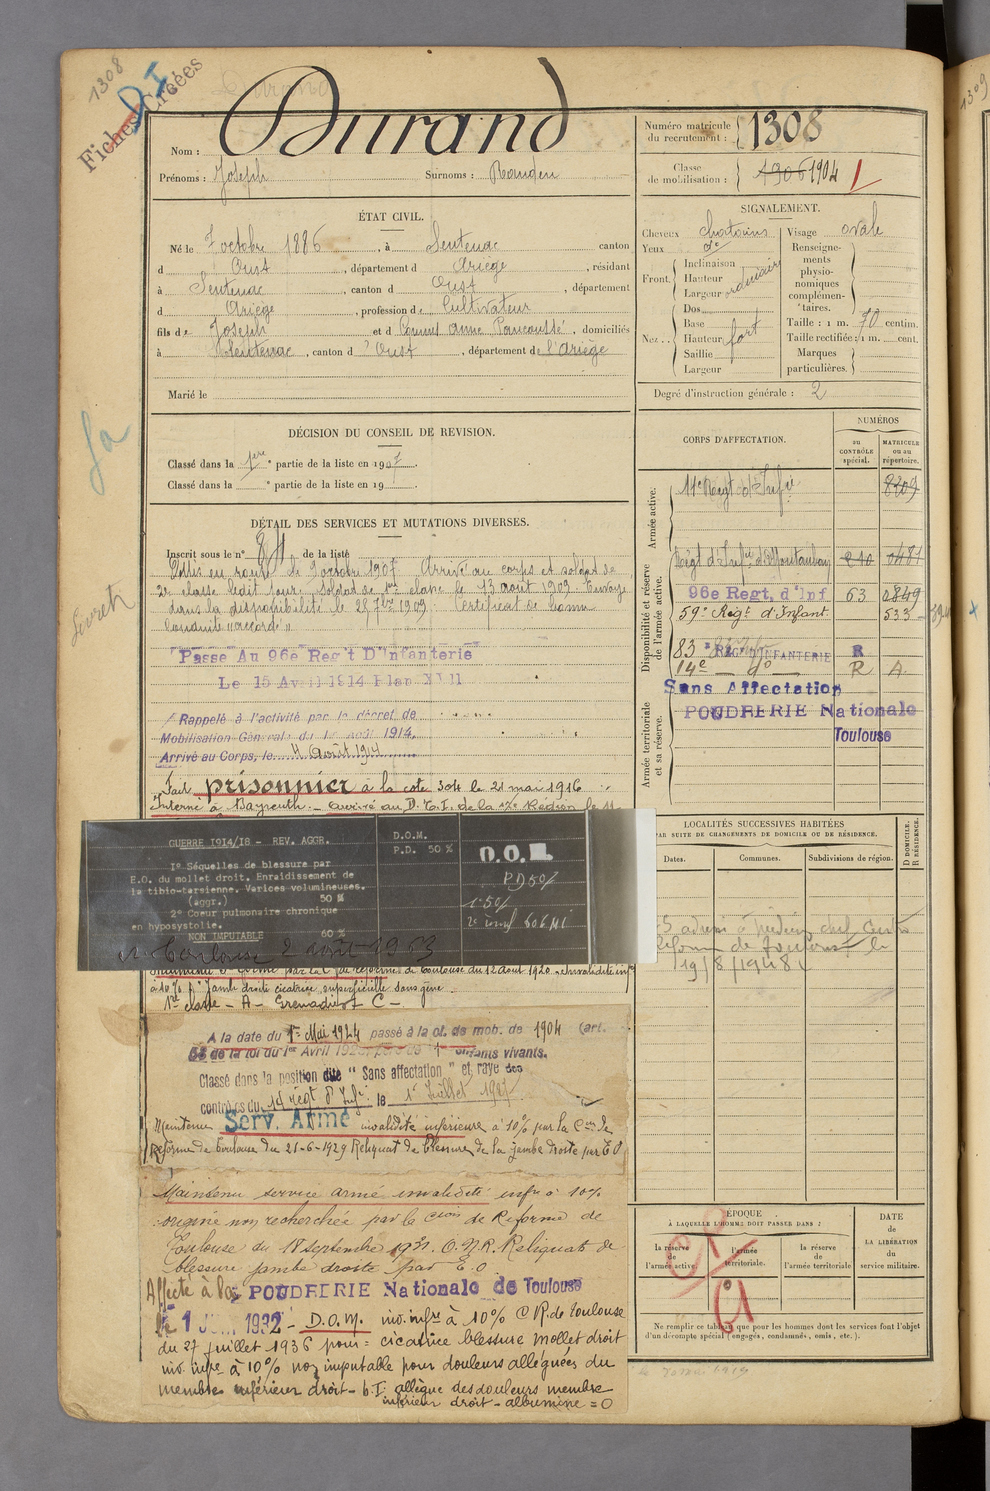 1308
Fiches Créées
D I
Nom : Durand
Prénoms : Joseph Surnoms :
Numéro matricule du recrutement : 1308
Classe de mobilisation : 1906 1904
ÉTAT CIVIL.
Né le 7 octobre 1886, à Sentenac canton
d Oust, département d Ariège, résidant
à Sentenac, canton d Oust, département
d Ariège, profession de Cultivateur
fils de Joseph et d Anne, domiciliés
à Sentenac, canton d'Oust, département de l'Ariège
Marié le
SIGNALEMENT.
Cheveux chatains Visage ovale
Yeux do
Front. Inclinaison Hauteur Largeur ordinaire
Nez.. Dos Base Hauteur Saillie Largeur fort
Renseignements physionomiques complémentaires.
Taille : 1 m. 70 centim.
Taille rectifiée : 1 m. cent.
Marques particulières.
Degré d'instruction générale : 2
DÉCISION DU CONSEIL DE REVISION.
Classé dans la 1ère partie de la liste en 1907.
Classé dans la e partie de la liste en 19
DÉTAIL DES SERVICES ET MUTATIONS DIVERSES.
Inscrit sous le n° 84 de la liste
Mis en route le 9 octobre 1907. Arrivé au corps et soldat de
2e classe ledit jour. Soldat de 1ère classe le 13 août 1909. Envoyé
dans la disponibilité le 28 7bre 1909. Certificat de bonne
conduite "accordé"
Passé Au 96e Reg't D'Infanterie
Le 15 Avril 1914 Plan XVII
Rappelé à l'activité par le décret de
Mobilisation Générale du 1er août 1914.
Arrivé au Corps, le 4 août 1914
Fait prisonnier à la cote 304 le 21 mai 1916
Interné à Bayreuth. - arrivé au D. T. I. de la 17e Région le 11
GUERRE 1914/18 - REV. AGGR.
1° Séquelles de blessure par
E.O. du mollet droit. Enraidissement de
la tibio-tarsienne. Varices volumineuses.
(aggr.) 50 %
2° Coeur pulmonaire chronique
en hyposystolie.
NON IMPUTABLE 60 %
D.O.M.
P.D. 50 %
D.O.M.
PD 50%
Toulouse 2 août 1953
de réforme de Toulouse du 12 août 1920 invalidité inf
à 10% Jambe droite cicatrice superficielle sans gêne.
1re classe - A - C -
A la date du 1er Mai 1924 passé à la cl. de mob. de 1904 (art.
58 de la loi du 1er Avril 1923 père de 1 enfants vivants.
Classé dans la position dite " Sans affectation " et rayé des
contrôles du 14 régt d'Infie le 1er Juillet 1927
Maintenu Serv. Armé invalidité inférieure à 10% par la Con de
Réforme de Toulouse du 21-6-1929 Reliquat de blessure de la jambe droite par E O
Maintenu service armé invalidité infre à 10%
origine non recherchée par la Cion de Réforme de
Toulouse du 18 septembre 1931. O.N.R. Reliquats de
blessure jambe droite par E.O
Affecté à la POUDRERIE Nationale de Toulouse
le 1 1932 - D.O.M. inv. infre à 10% C R. de Toulouse
du 27 juillet 1936 pour = cicatrice blessure mollet droit
inv. infre à 10% non imputable pour douleurs alléguées du
membre inférieur droit - b. I. allègue des douleurs membre
inférieur droit - albumine = 0
CORPS D'AFFECTATION.
NUMÉROS
au CONTRÔLE spécial.
MATRICULE ou au répertoire.
Armée active.
11e Régt d'Infie 8209
Disponibilité et réserve de l'armée active.
Régt d'Infie de Montauban 210 0481
96e Regt. d'Inf 63 0849
59e Régt d'Infant 533
83 e RÉG. D'INFANTERIE R
14e - do - R A.
Armée territoriale et sa réserve.
Sans Affectation
POUDRERIE Nationale
Toulouse
LOCALITÉS SUCCESSIVES HABITÉES
PAR SUITE DE CHANGEMENTS DE DOMICILE OU DE RÉSIDENCE.
Dates. Communes. Subdivisions de région.
D DOMICILE. R RÉSIDENCE.
adressé à Médecin chef Centre
Réforme de Toulouse le
19/8/1948
ÉPOQUE
À LAQUELLE L'HOMME DOIT PASSER DANS :
la réserve de l'armée active.
l'armée territoriale.
la réserve de l'armée territoriale
DATE de LA LIBÉRATION du service militaire.
Ne remplir ce tableau que pour les hommes dont les services font l'objet
d'un décompte spécial (engagés, condamnés, omis, etc.).
1309